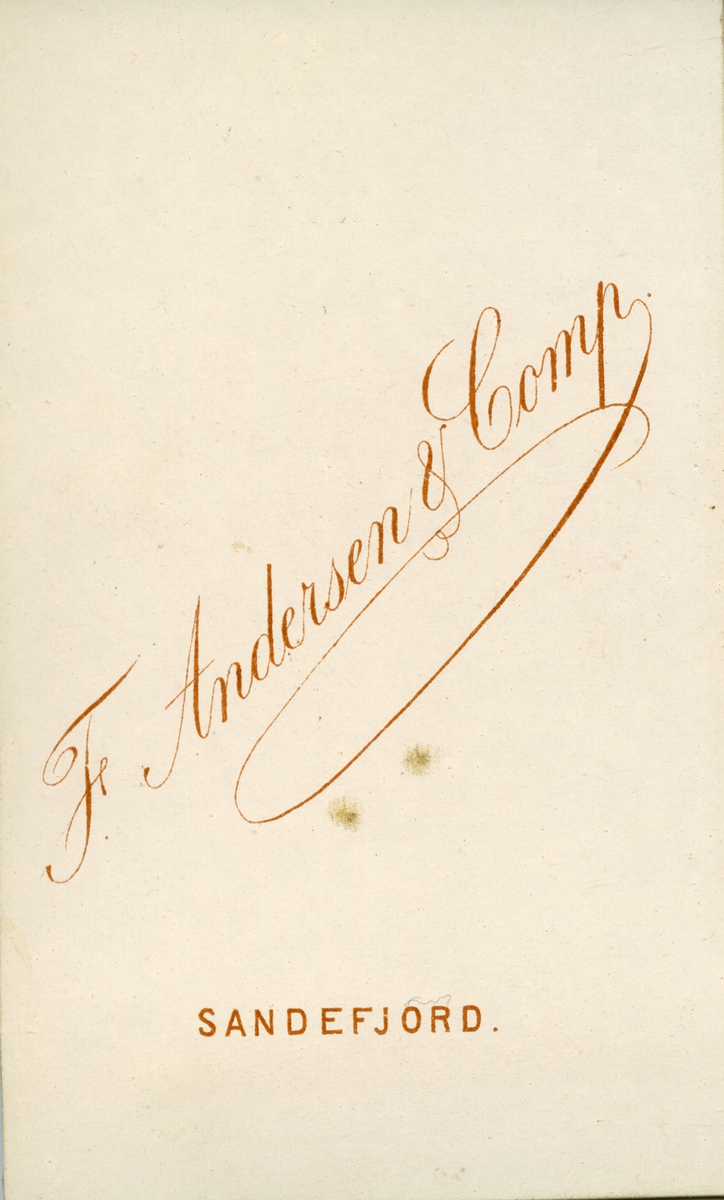 F. Andersen & Comp.
SANDEFJORD.